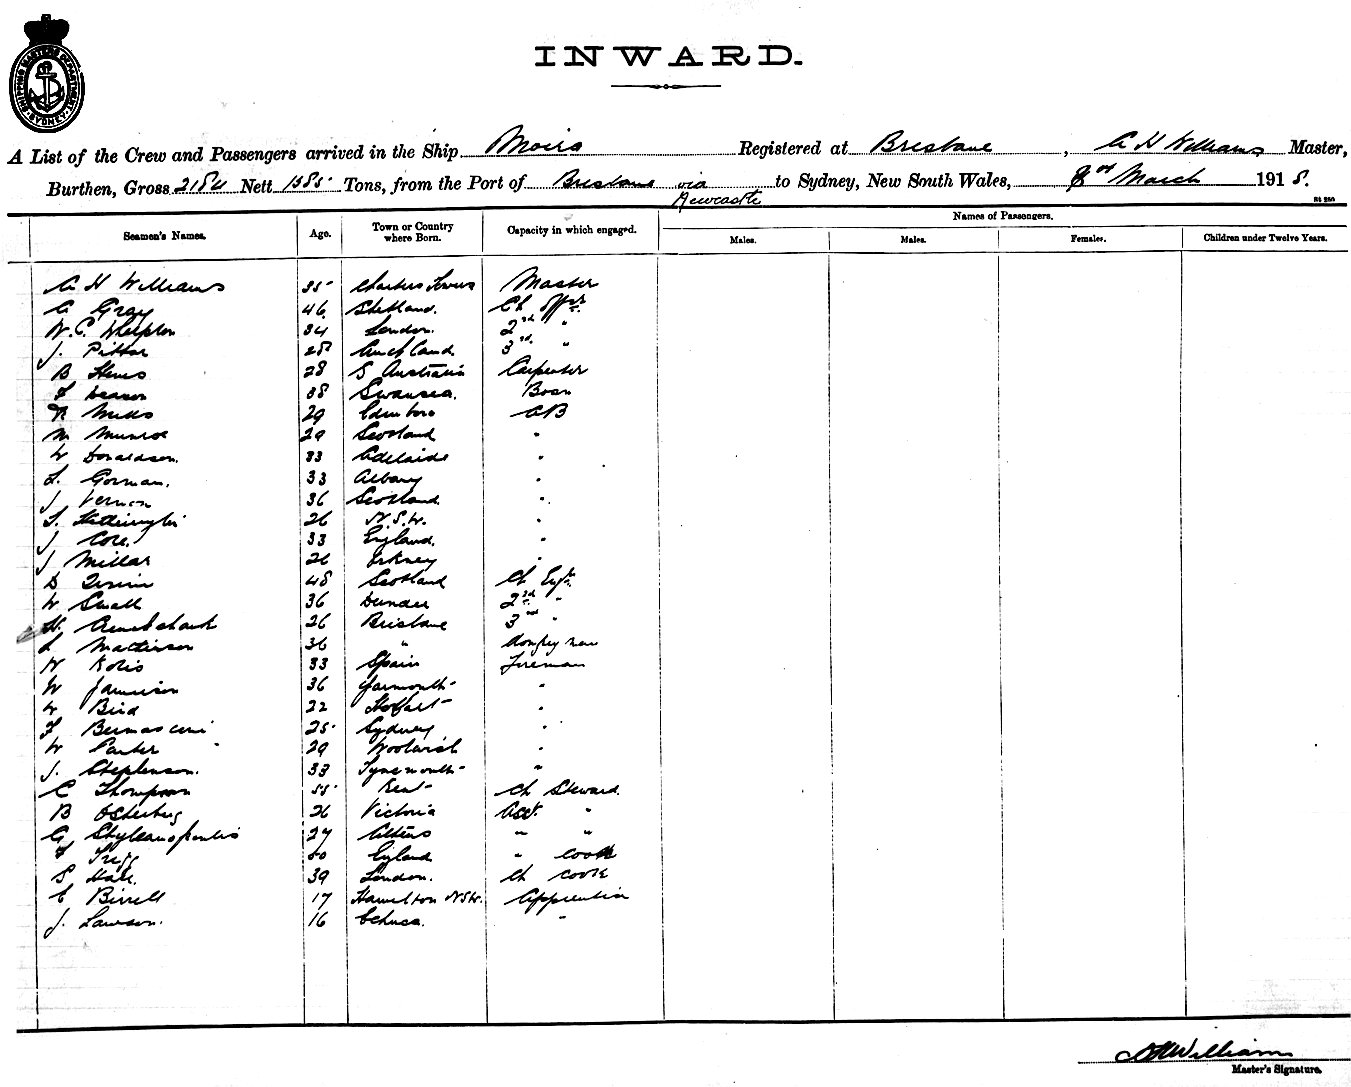 SHIPPING MASTERS DEPARTMENT SYDNEY
INWARD.
A List of the Crew and Passengers arrived in the Ship Moira Registered at Brisbane, A H Williams Master,
Burthen, Gross 2184 Nett Tons, from the Port of Brisbane via Newcastle to Sydney, New South Wales, March 1918.
Names of Passengers.
Seamen's Names. Age. Town or Country where Born. Capacity in which engaged. Males. Males. Females. Children under Twelve Years.
A H Williams 35 Charters Towers Master
A Gray 46 Shetland. Ch Offr.
W. C. Whelpton 34 London. 2nd "
J. Pittar 28 Auckland. 3rd. "
B 28 S Australia Carpenter
F 38 Swansea. Bosn
29 Edinboro AB
M Munroe 29 Scotland "
W Donaldson. 33 Adelaide "
L. Gorman. 33 Albany "
J Vernon 36 Scotland. "
26 N.S.W. "
J Cole. 33 England. "
J Millar 26 Orkney "
D 48 Scotland Ch Engr.
W Small 36 Dundee 2nd "
H. 26 Brisbane 3rd "
L Mattinson 36 " donkeyman
33 Spain Fireman
W Jamieson 36 Yarmouth "
W Bird 22 Hobart "
F Bernasconi 25 Sydney "
W Parker 29 Woolwich "
J. Stephenson. 33 Tynemouth "
C Thompson 55 Kent Ch Steward.
B Osterberg 26 Victoria Asst. "
G Stylianopoulis 27 Athens " "
F Trigg England " cook
S Hale. 39 London. Ch Cook
E Birrell 17 Hamilton NSW. Apprentice
J. Lawson. 16 Echuca. "
A H Williams
Master's Signature.